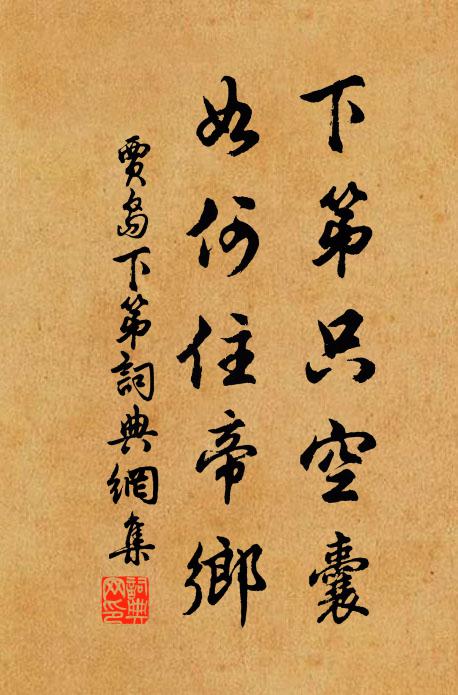 下第只空囊
如何住帝鄉
賈島下第詞典網集
詞典網印